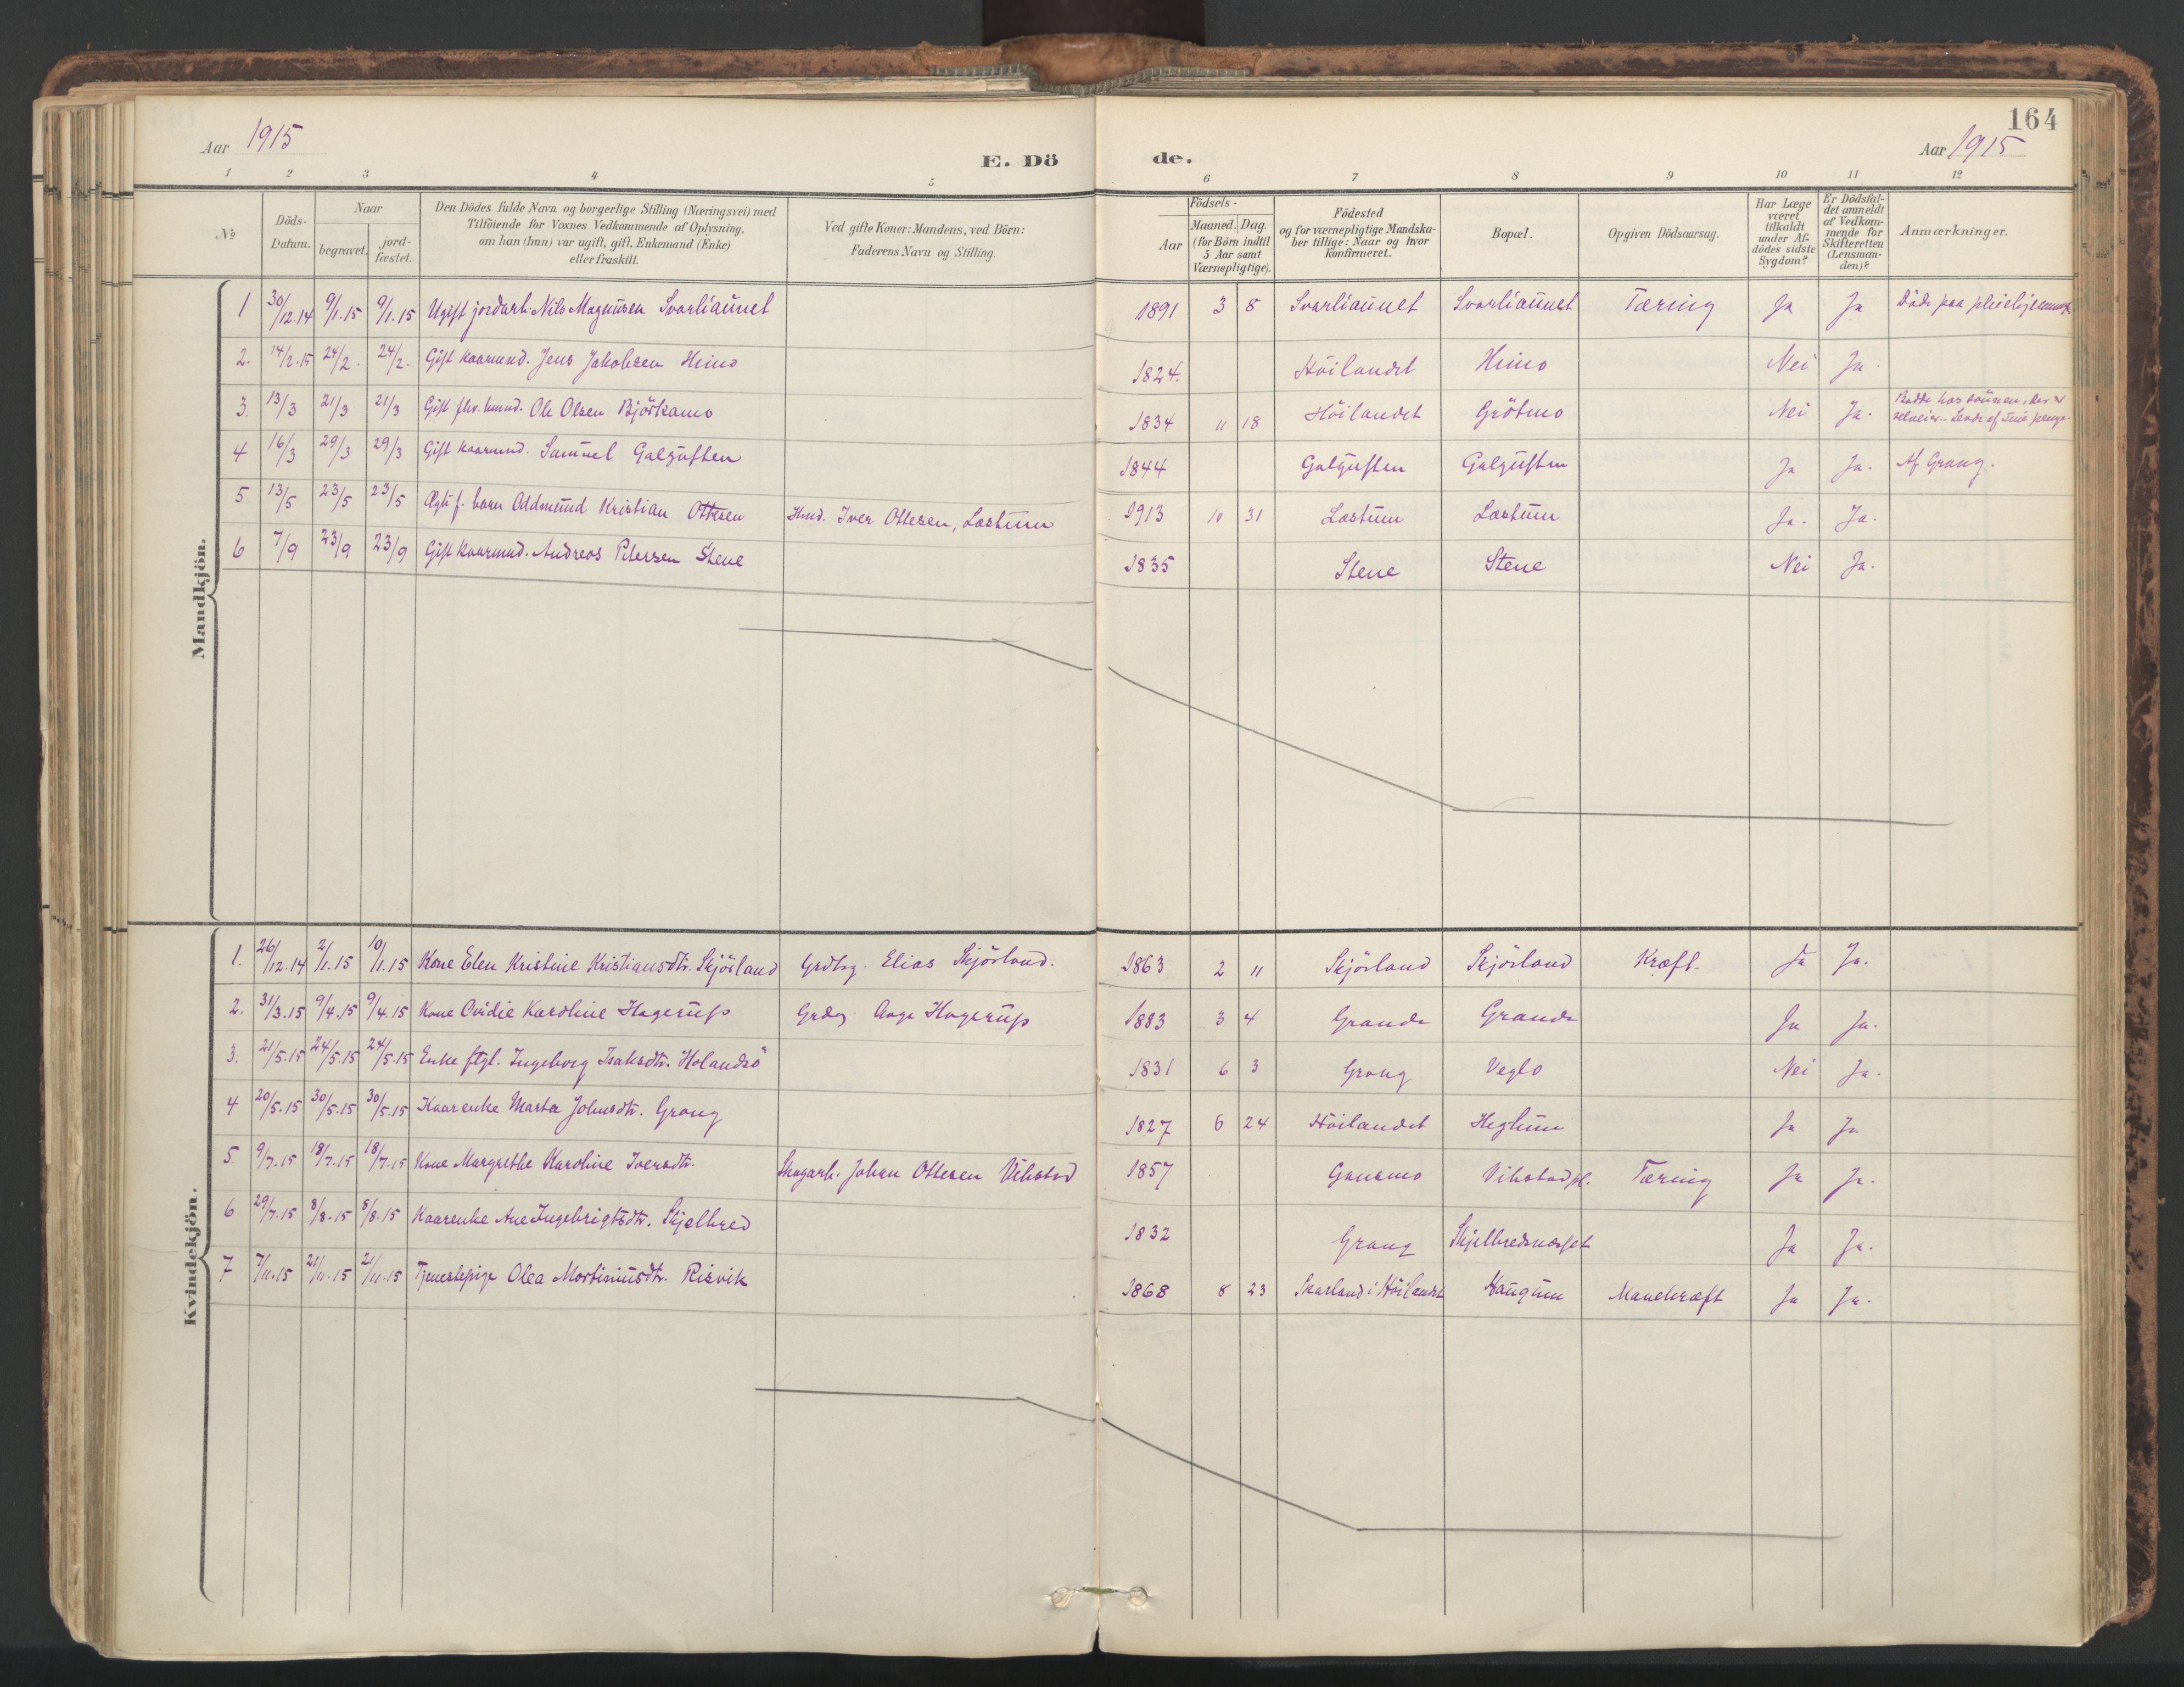 164
Aar 1915
E. Dö
de.
Aar 1915
1 2 3 4 5 6 7 8 9 10 11 12
No
Döds-Datum.
Naar
begravet.
jord-fæstet.
Den Dödes fulde Navn og borgerlige Stilling (Næringsvei) med
Tilföiende for Voxnes Vedkommende af Oplysning,
om han (hun) var ugift, gift, Enkemand (Enke)
eller fraskilt.
Ved gifte Koner: Mandens, ved Börn:
Faderens Navn og Stilling.
Födsels-
Aar
Maaned. Dag.
(for Börn indtil
5 Aar samt
Værnepligtige).
Födested
og for værnepligtige Mandska-
ber tillige: Naar og hvor
konfirmeret.
Bopæl.
Opgiven Dödsaarsag.
Har Læge
været
tilkaldt
under Af-
dödes sidste
Sygdom?
Er Dödsfal-
det anmeldt
af Vedkom-
mende for
Skifteretten
(Lensman-
den)?
Anmærkninger.
Mandkjön.
1 30/12.14 9/1.15 9/1.15 Ugift jordarb. Nils Magnusen Svarliaunet 1891 3 8 Svarliaunet Svarliaunet Tæring Ja Ja Döde paa pleiehjemmet
2. 14/2.15 24/2. 24/2. Gift kaarmd. Jens Jakobsen Heimo 1824. Höilandet Heimo Nei Ja.
3. 13/3 21/3 21/3 Gift fhv. hmd. Ole Olsen Björkamo 1834 11 18 Höilandet Grötmo Nei Ja. Bodde hos sönnen, der er
selveier. Levde af sine penge.
4 16/3 29/3 29/3 Gift kaarmd. Samuel Galguften 1844 Galguften Galguften Ja Ja. Af Grong.
5 13/5 23/5 23/5 Ægte f. barn Oddmund Kristian Ottesen Hmd. Iver Ottesen, Læstum 1913 10 31 Læstum Læstum Ja. Ja.
6 7/9 23/9 23/9 Gift kaarmd. Andreas Petersen Stene 1835 Stene Stene Nei Ja.
Kvindekjön.
1. 26/12.14 2/1.15 10/1.15 Kone Elen Kristine Kristiansdtr. Skjörland Grdbrg. Elias Skjörland. 1863 2 11 Skjörland Skjörland Kræft. Ja Ja.
2. 31/3.15 9/4.15 9/4.15 Kone Ovidie Karoline Hagerup Grdbrg. Aage Hagerup 1883 3 4 Grande Grande Ja Ja.
3. 21/5.15 24/5.15 24/5.15 Enke ftgl. Ingeborg Isaksdtr. Holandsö 1831 6 3 Grong Veglo Nei Ja.
4 20/5.15 30/5.15 30/5.15 Kaarenke Marta Johnsdtr. Grong 1827 6 24 Höilandet Heglum Ja Ja
5. 9/7.15 18/7.15 18/7.15 Kone Margrethe Karoline Iversdtr. Skogarb. Johan Ottesen Vikstad 1857 Gausmo Vikstad pl. Tæring Ja Ja.
6 29/7.15 8/8.15 8/8.15 Kaarenke Ane Ingebrigtsdtr. Skjelbred 1832 Grong Skjelbredsnæsset Ja Ja.
7 7/11.15 21/11.15 21/11.15 Tjenestepige Olea Mortinusdtr. Risvik 1868 8 23 Skarland i Höilandet Haugum Mavekræft Ja Ja.